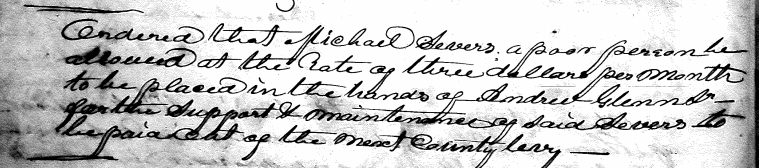 Ordered that Michael Severs a poor person be
allowed at the Rate of three dollars per Month
to be placed in the hands of Andrew Glenn Sr —
for the Support & maintenance of said Severs to
be paid out of the next County levy —